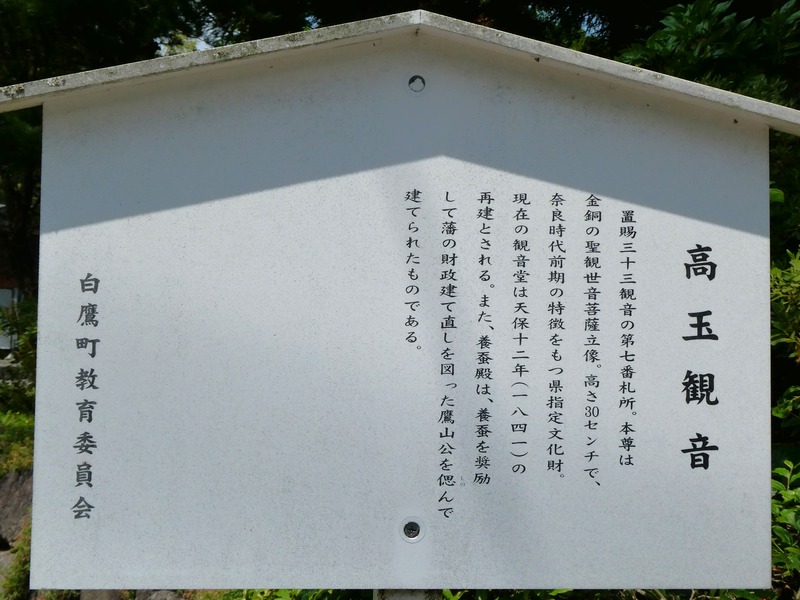 高玉観音
置賜三十三観音の第七番札所。本尊は
金銅の聖観世音菩薩立像。高さ30センチで、
奈良時代前期の特徴をもつ県指定文化財。
現在の観音堂は天保十二年(一八四一)の
再建とされる。また、養蚕殿は、養蚕を奨励
して藩の財政建て直しを図った鷹山公を偲んで
建てられたものである。
白鷹町教育委員会